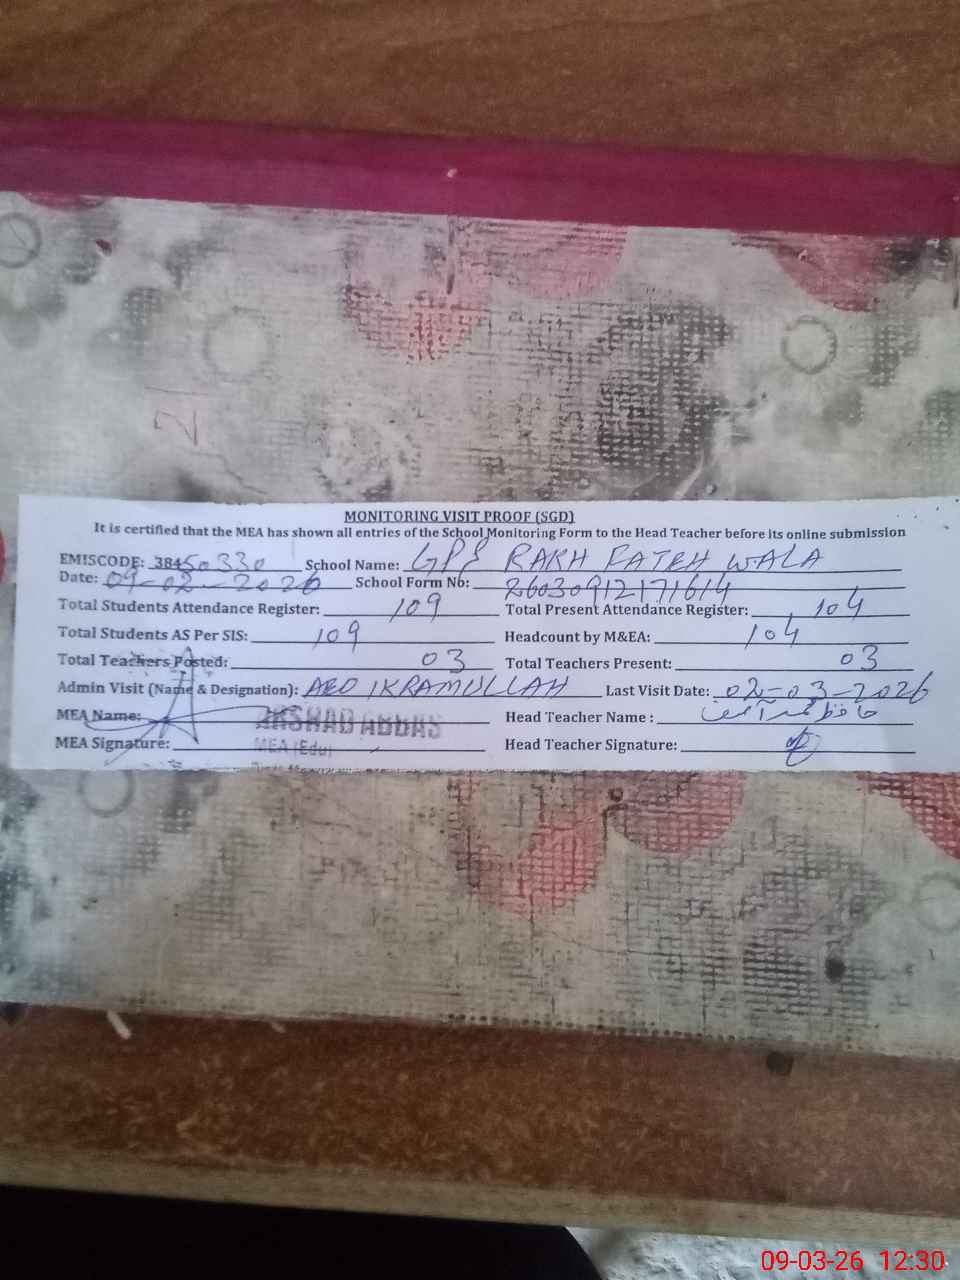 MONITORING VISIT PROOF (SGD)
It is certified that the MEA has shown all entries of the School Monitoring Form to the Head Teacher before its online submission
EMISCODE: 38450330 School Name: GPS RAKH FATEH WALA
Date: 09-02-2026 School Form No: 26030912171614
Total Students Attendance Register: 109 Total Present Attendance Register: 104
Total Students AS Per SIS: 109 Headcount by M&EA: 104
Total Teachers Posted: 03 Total Teachers Present: 03
Admin Visit (Name & Designation): AEO IKRAMULLAH Last Visit Date: 02-03-2026
MEA Name: ARSHAD ABBAS Head Teacher Name : حافظ محمد آصف
MEA Signature: MEA (Edu) Head Teacher Signature:
09-03-26 12:30